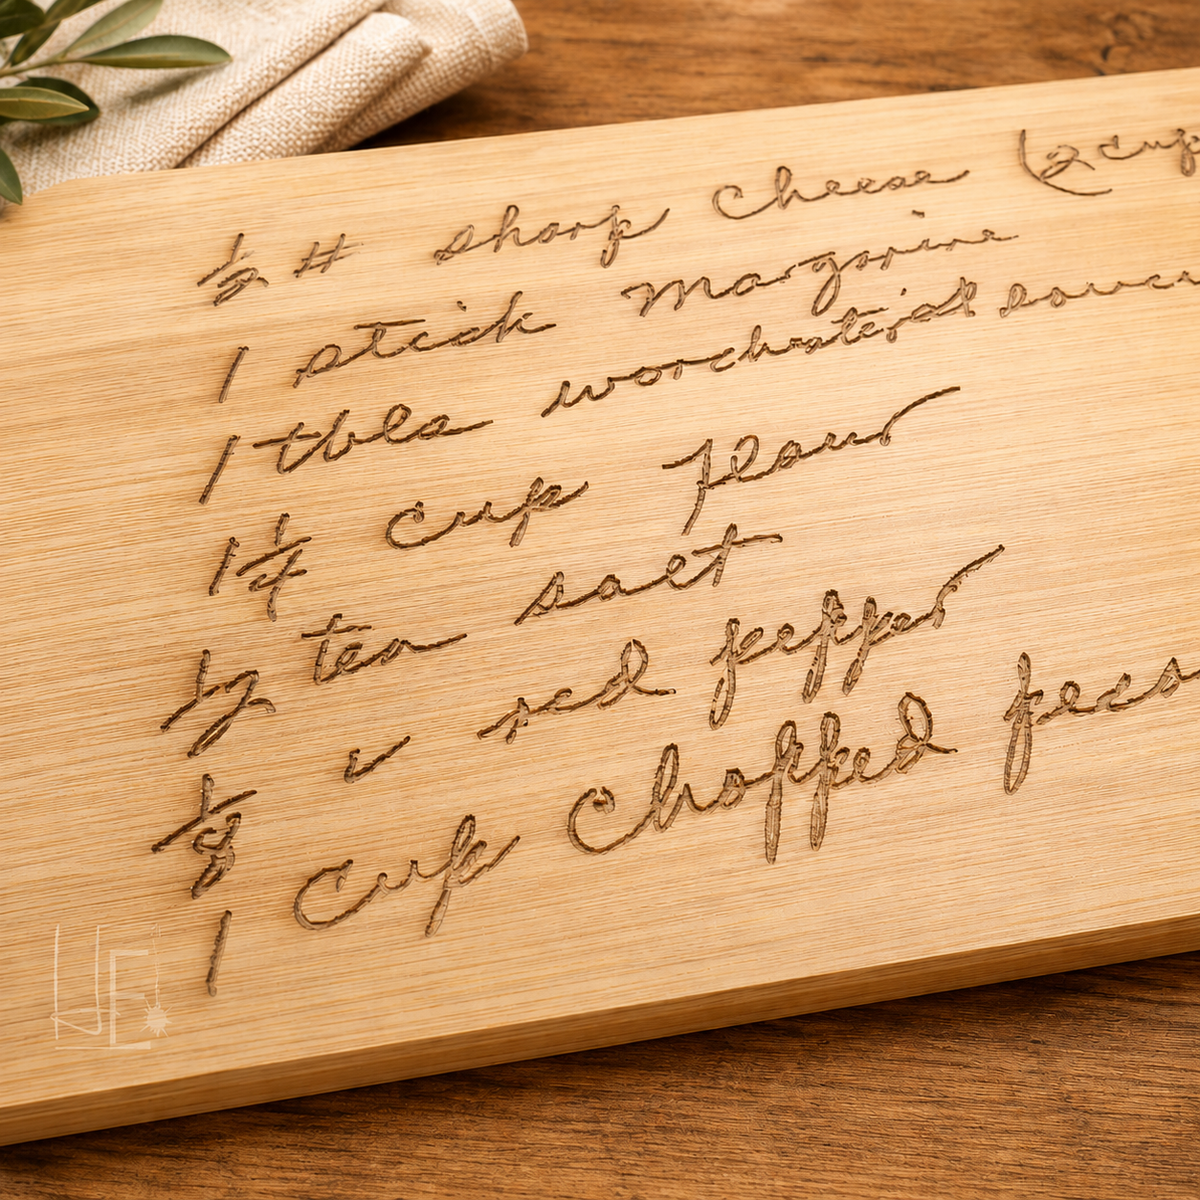 ½ # sharp cheese (2 cup
1 stick Margarine
1 tbls worchesterish sauc
1¼ cup Flour
½ tea salt
⅛ " red pepper
1 cup Chopped peca
HE